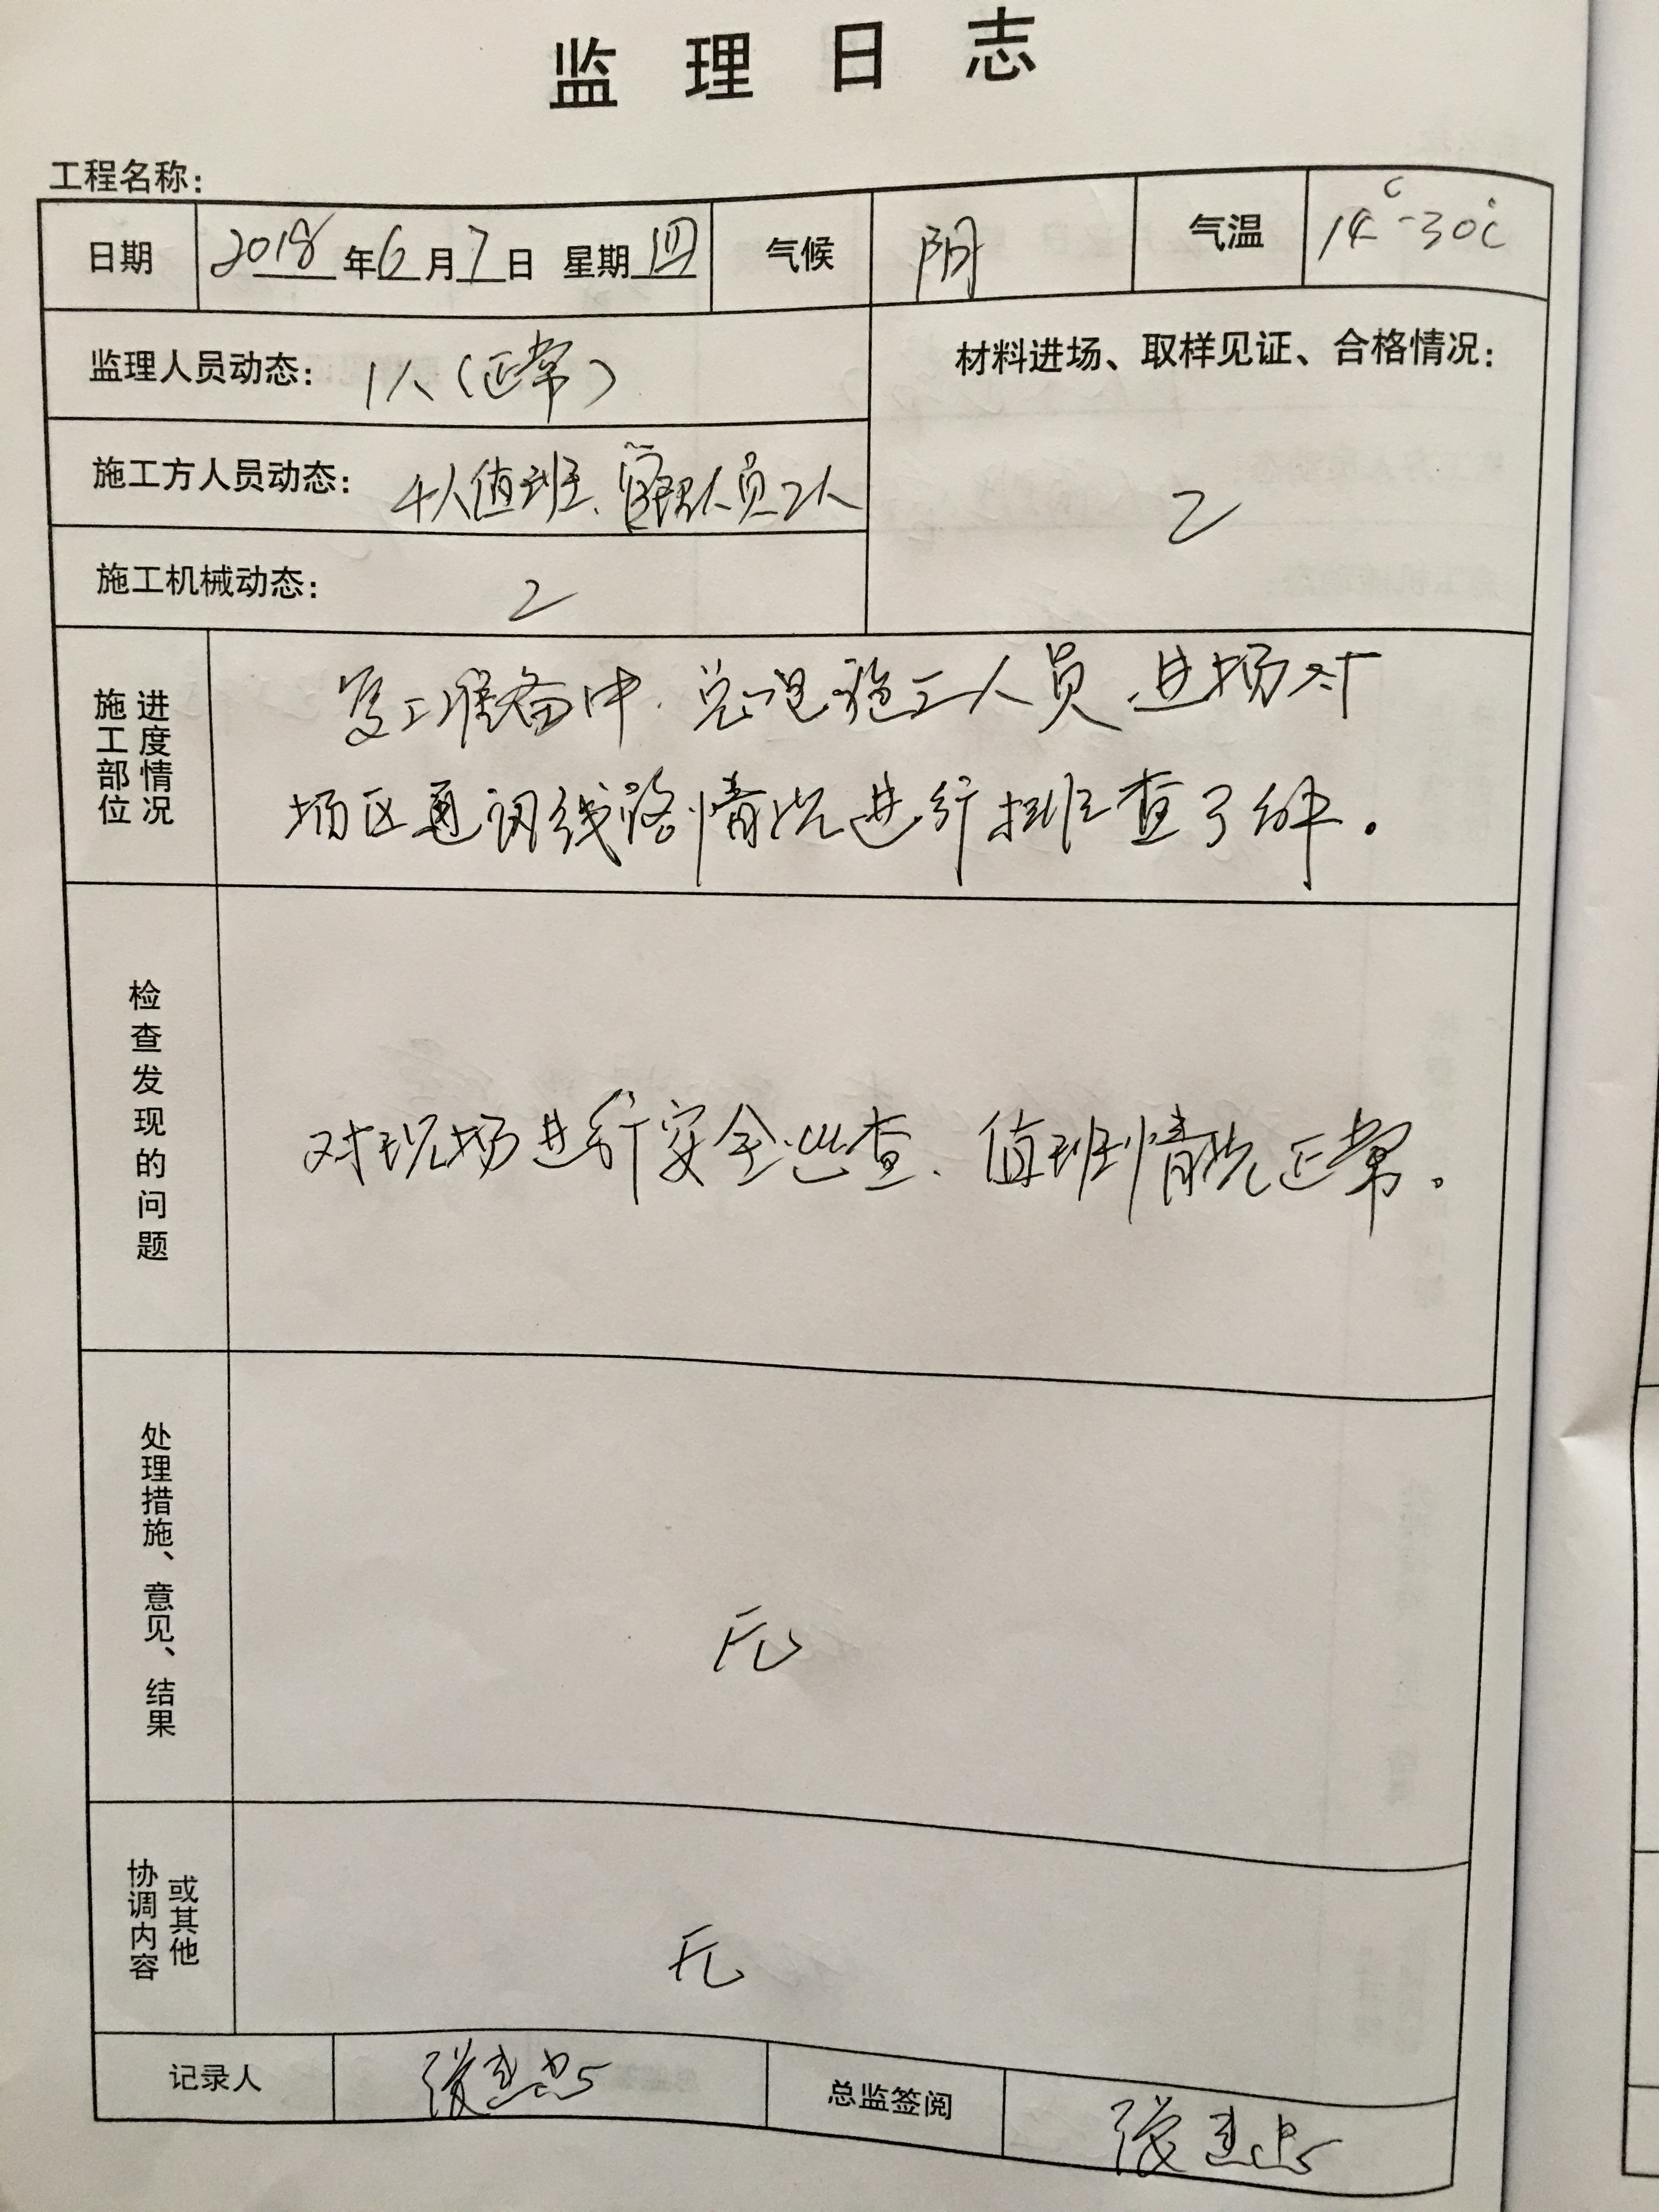 监理日志
工程名称：
日期 2018年6月7日 星期四 气候 阴 气温 14℃-30℃
监理人员动态： 1人（正常）
材料进场、取样见证、合格情况：
施工方人员动态： 4人值班、管理人员2人
施工机械动态：
施工部位
进度情况
复工准备中. 总包施工人员进场对
场区通讯线路情况进行排查了解。
检查发现的问题
对现场进行安全巡查、值班情况正常。
处理措施、意见、结果
无
协调内容
或其他
无
记录人 张建忠 总监签阅 张建忠